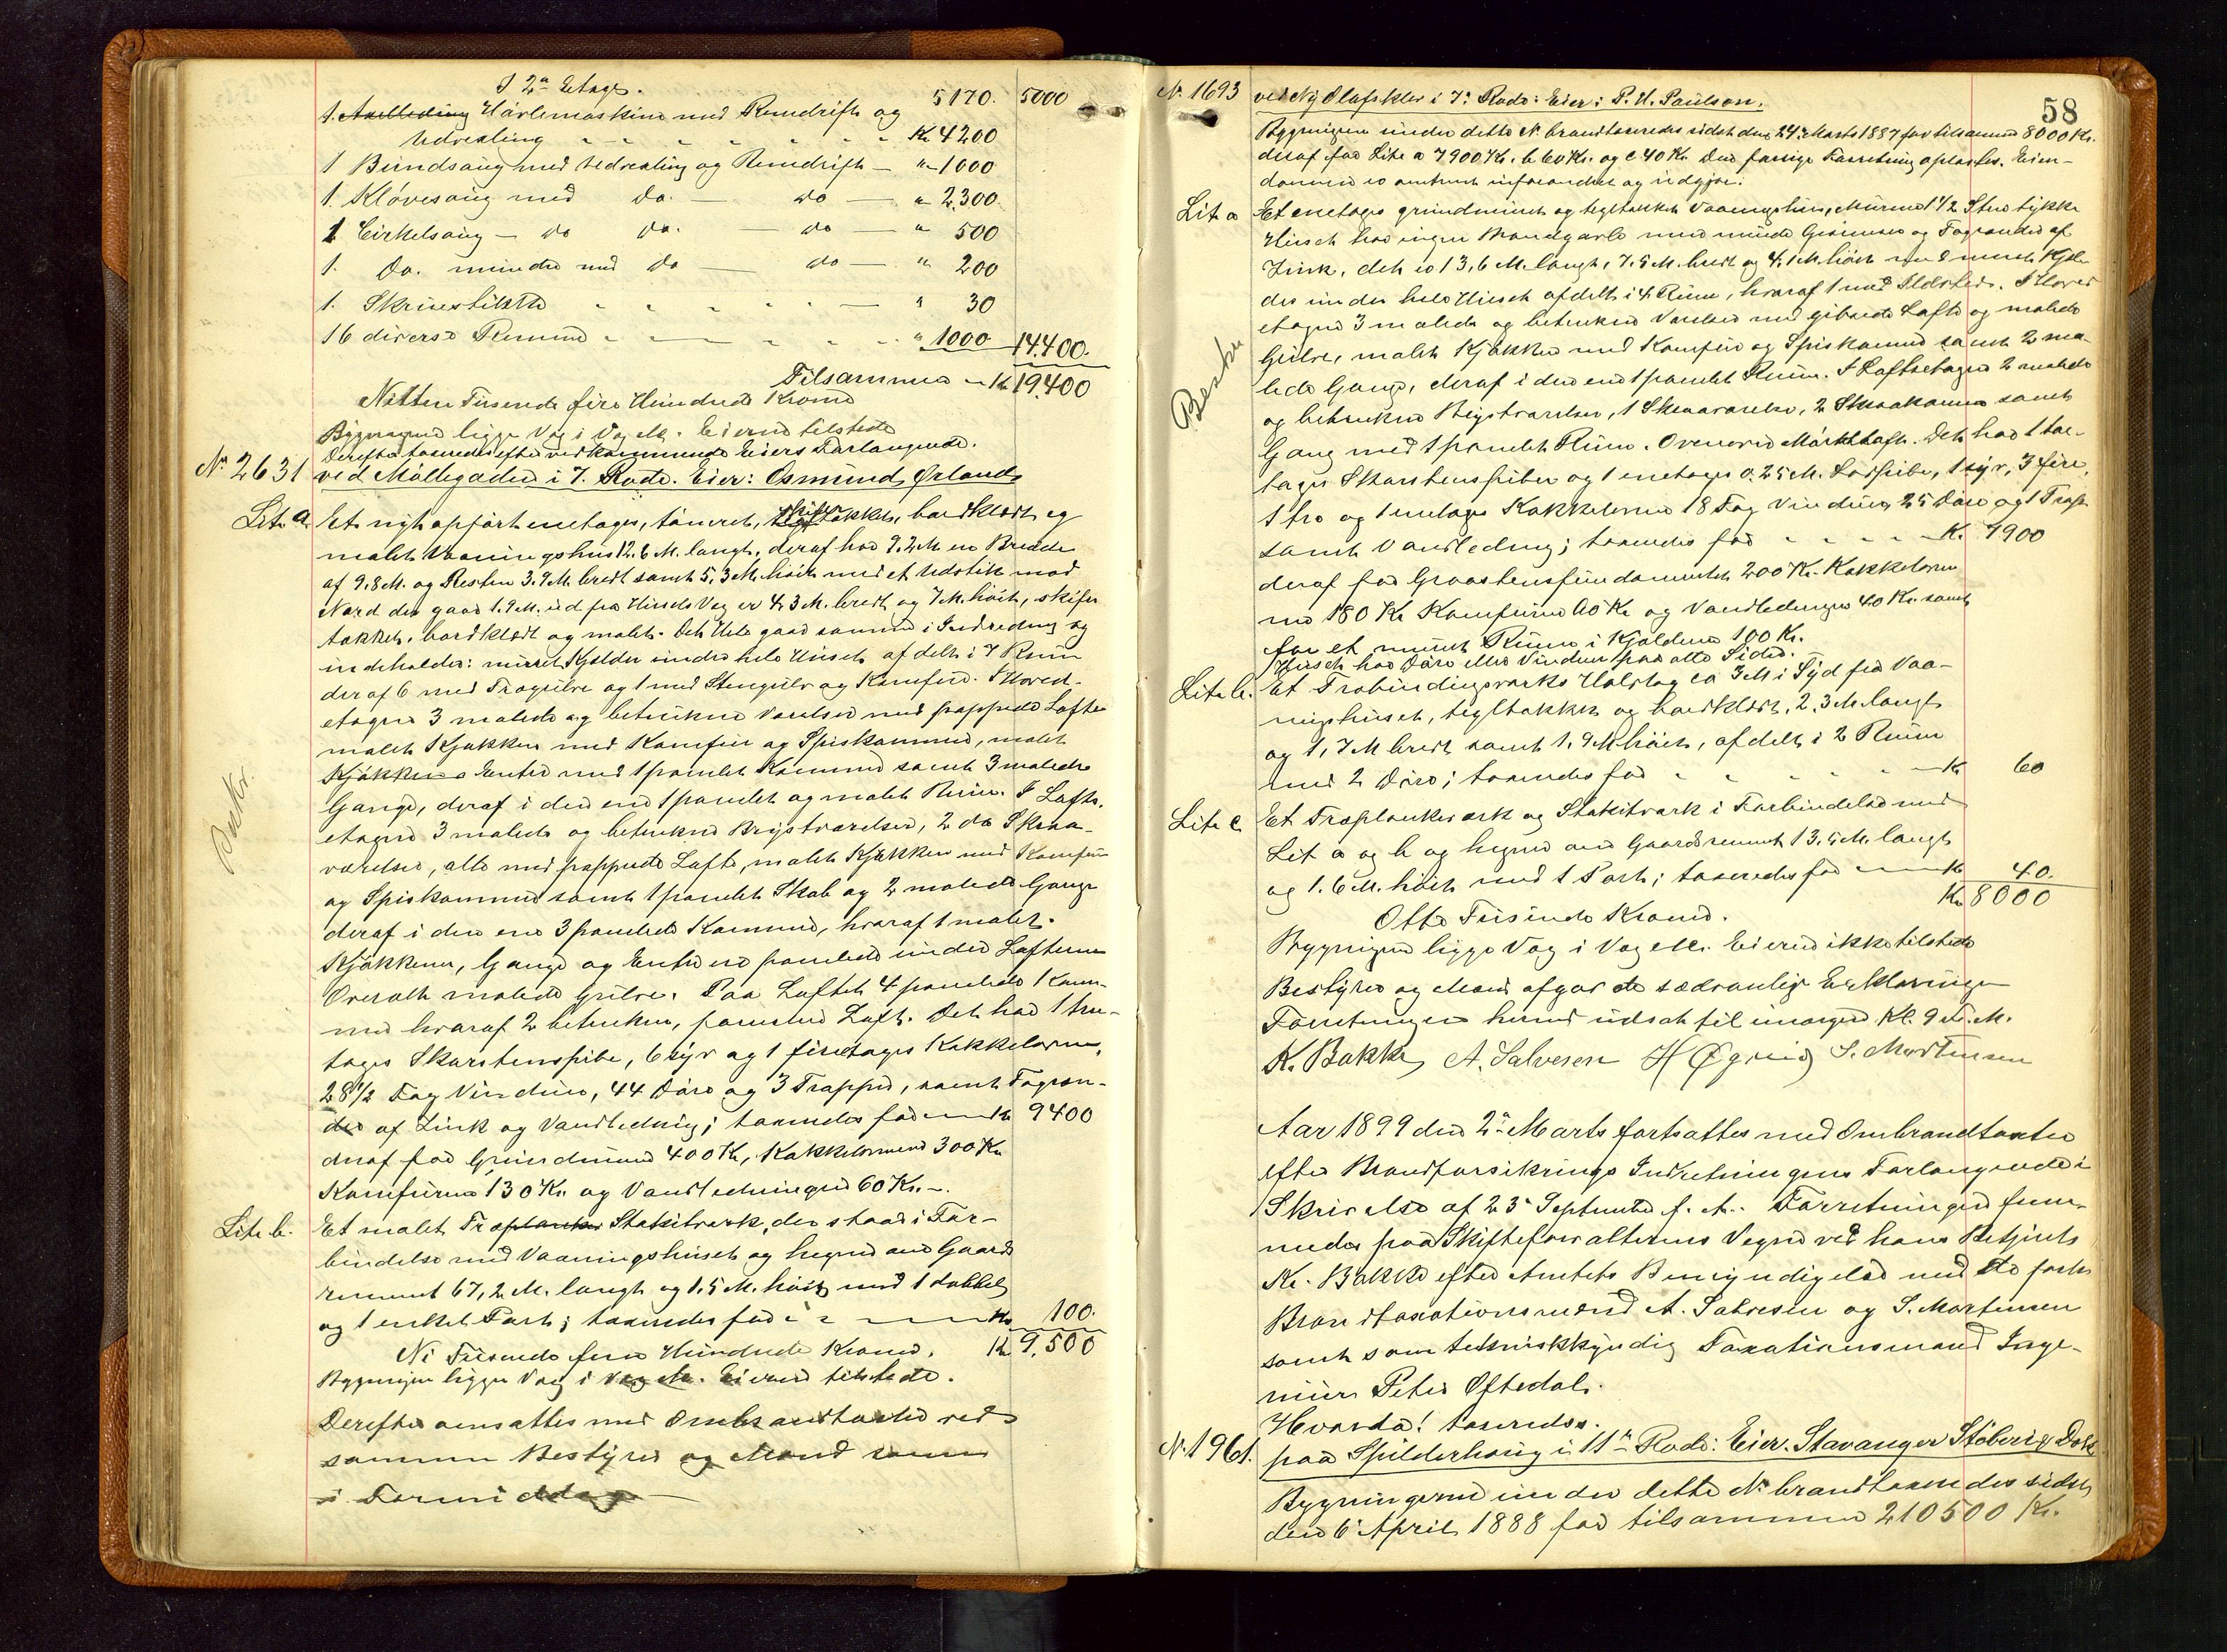 I 2n Etage. 5170. 5000
1. Axelledning Høvlemaskine med Remdrift og
Udvexling Kr 4200
1 Bundsaug med Udvexling og Remdrift — " 1000
1. Kløvesaug med Do. — do — " 2,300.
1 Cirkelsaug — do do. — do — " 500
1. Do. mindre med do — do — " 200
1. Skruestikke " 30
16 diverse Remme " 1000 14,400.
Tilsammen Kr 19,400
Nitten Tusende fire Hundrede Kroner
Bygningerne ligge Væg i Væg M. Eieren tilstede
Derefter taxeredes efter vedkommende Eiers Forlangende.
No 2631 ved Møllegaden i 7. Rode. Eier: Osmund Ørland
Lit. a. Et nyt opført enetages, tømret, tegl skifertækket, bordklædt og
malet Vaaningshus 12.6 M. langt, deraf har 9.2 M en Bredde
af 9.8 M. og Resten 3.9 M. bredt samt 5,3 M. høit med et Udstik mod
Nord der gaar 1.9 M. ud fra Husets Væg er 4,3 M. bredt og 7 M. høit, skifer
tækket, bordklædt og malet. Det Hele gaar sammen i Indredning og
indeholder: muret Kjelder under hele Huset afdelt i 7 Rum
deraf 6 med Trægulve og 1 med Stengulv og Komfur. I Hoved-
etagen 3 malede og betrukne Værelser med pappede Lofte
malet Kjøkken med Komfur og Spiskammer, malet
Kjøkken Entre med 1 panelet Kammer samt 3 malede
Gange, deraf i den ene 1 panelet og malet Rum. I Lofts-
etagen 3 malede og betrukne Brystværelser, 2 do Skraa-
værelser, alle med pappede Lofte, malet Kjøkken med Komfur
og Spiskammer samt 1 panelet Skab og 2 malede Gange
deraf i den ene 3 panelede Kammer, hvoraf 1 malet.
Kjøkkener, Gange og Entre ere panelede under Lofterne
Overalt malede Gulve. Paa Loftet 4 panelede Kam-
mer hvoraf 2 betrukne, panelede Loft. Det har 1 tre-
tages Skorstenspibe, 6 syv og 1 fireetages Kakkelovne,
28 1/2 Fag Vinduer, 44 Døre og 3 Trapper, samt Tagren-
der af Zink og Vandledning; taxeredes for Kr 9400
deraf for Grundmuren 400 Kr, Kakkelovnene 300 Kr
Komfurene 130 Kr. og Vandledningen 60 Kr.
Lit. b. Et malet Træplanke Stakitværk, der staar i For-
bindelse med Vaaningshuset og hegner om Gaards
rummet 67,2 M. langt og 1,5 M. høit med 1 dobbelt
og 1 enkel Port; taxeredes for Kr. 100.
Ni Tusende fem Hundrede Kroner. Kr 9,500
Bygningen ligger Væg i Væg M. Eieren tilstede.
Derefter omsattes med Ombrandtaxter ved
samme Bestyrer og Mænd som
i Formiddag
58
No. 1693 ved Ny Olafskler i 7de Rode: Eier: P. H. Paulson.
Bygningen under dette No brandtaxeredes sidst den 24de Marts 1887 for tilsammen 8000 Kr.
deraf for Lite a 7900 Kr. b 60 Kr. og c 40 Kr. Den forrige Forretning oplæstes. Eien-
dommen er omtrent uforandret og udgjør:
Lit. a Et enetages grundmuret og tegltækket Vaaningshus, Murene 1 1/2 Sten tykke
Huset har ingen Brandgavle med murede Gesimser og Tagrender af
Zink, det er 13,6 M. langt, 7.5 M. bredt og 4.1 M. høit med muret Kjel-
der under hele Huset afdelt i 4 Rum, hvoraf 1 med Ildsted. I Hoved
etagen 3 malede og betrukne Værelser med gibsede Lofte og malede
Gulve, malet Kjøkken med Komfur og Spiskammer samt 2 ma-
lede Gange, deraf i den ene 1 panelet Rum. I Loftsetagen 2 malede
og betrukne Brystværelser, 1 Skraaværelse, 2 Skraakammer samt
Gang med 1 panelet Rum. Ovenover Mørkloft. Det har 1 toe-
tages Skorstenspibe og 1 enetages 0.25 M. Lodpibe, 1 syv, 3 fire,
1 tre og 1 enetages Kakkelovne 18 Fag Vinduer, 25 Døre og 1 Trappe
samt Vandledning; taxeredes for Kr. 7900
deraf for Graastensfundamentet 200 Kr. Kakkelovne
ne 180 Kr Komfuren 40 Kr og Vandledningen 40 Kr. samt
for et muret Rum i Kjelderen 100 Kr.
Huset har Døre eller Vinduer paa alle Sider.
Lite b. Et Træbindingsværks Halvtag ca 3 M i Syd fra Vaa-
ningshuset, tegltækket og bordklædt, 2.3 M. langt
og 1,7 M bredt samt 1.9 M høit, afdelt i 2 Rum
med 2 Døre; taxeredes for Kr 60
Lite c. Et Træplankeværk og Stakitværk i Forbindelse med
Lit a og b og hegner om Gaardsrummet 13.5 M. langt
og 1.6 M. høit med 1 Port; taxeredes for Kr 40.
Kr 8000
Otte Tusinde Kroner.
Bygningen ligge Væg i Væg M. Eieren ikke tilstede
Bestyrer og Mænd afgav de sædvanlige Erklæringer
Forretningen herved udsat til imorgen Kl. 9 F. M.
K. Bakke A. Salvesen H Øgreid S. Mortensen
Aar 1899 den 2den Marts fortsattes med Ombrandtaxter
efter Brandforsikrings Indretningens Forlangende i
Skrivelse af 23de September f. A. Forretningen frem-
medes paa Skifteforvalterens Vegne ved hans Betjent
Kr. Bakke efter Amtets Bemyndigelse med de faste
Brandtaxationsmænd A. Salvesen og S. Mortensen
samt som tekniskkyndig Taxationsmand Inge-
niør Peter Oftedal.
Hvorda! taxeredes.
No. 1961. paa Spilderhaug i 11te Rode: Eier. Stavanger Støberi & Dok
Bygningerne under dette No brandtaxeredes sidst
den 6te April 1888 for tilsammen 210500 Kr.